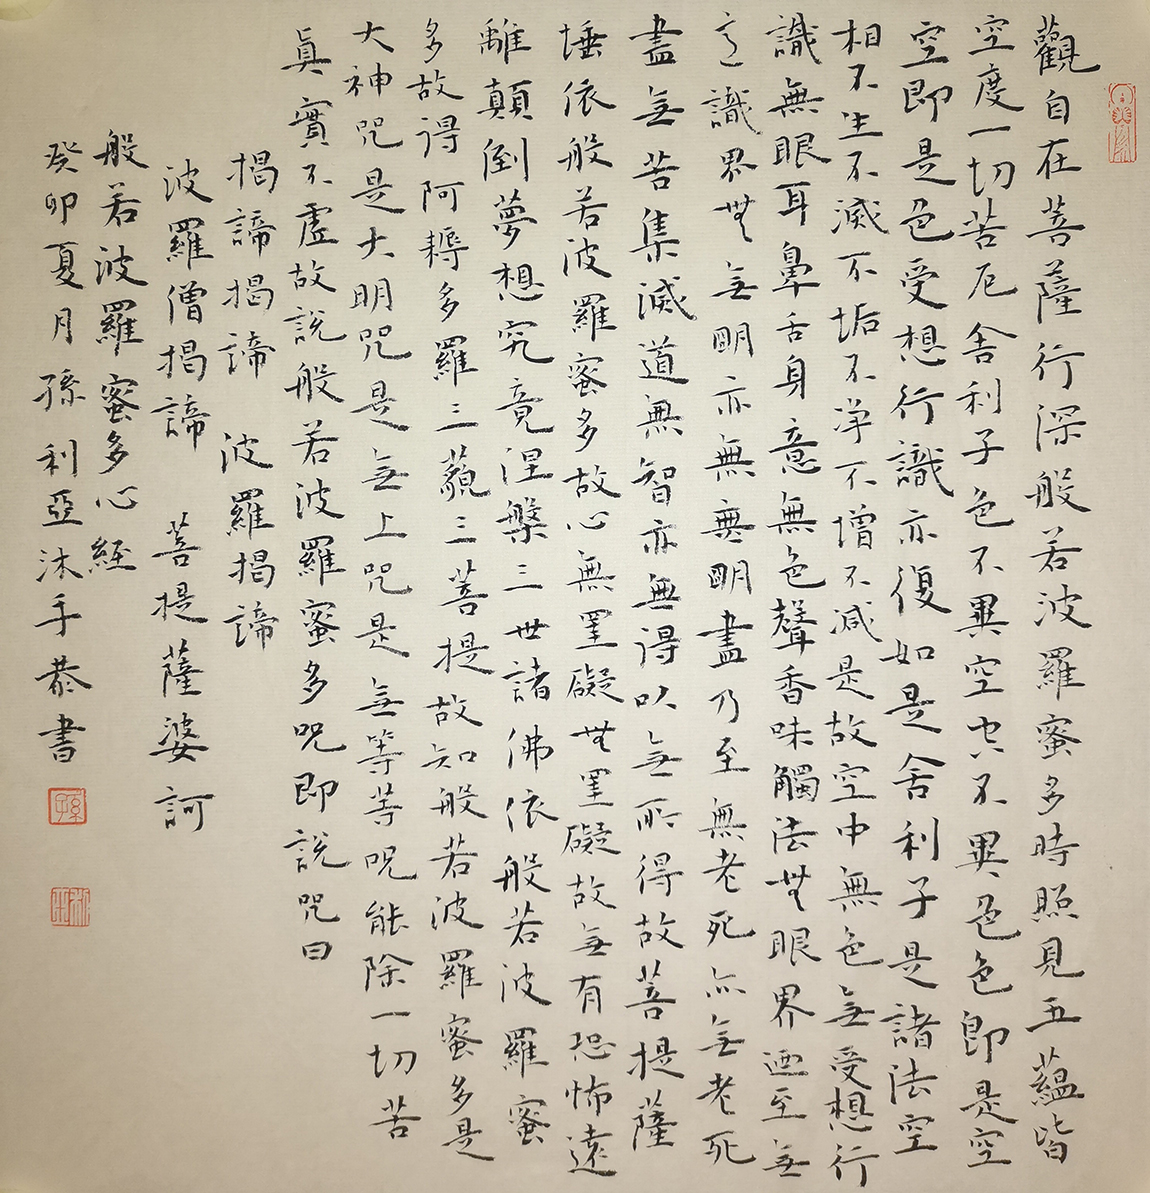 觀自在菩薩行深般若波羅蜜多時照見五蘊皆
空度一切苦厄舍利子色不異空空不異色色即是空
空即是色受想行識亦復如是舍利子是諸法空
相不生不滅不垢不淨不增不減是故空中無色無受想行
識無眼耳鼻舌身意無色聲香味觸法無眼界迺至無
意識界無無明亦無無明盡乃至無老死亦無老死
盡無苦集滅道無智亦無得以無所得故菩提薩
埵依般若波羅蜜多故心無罣礙無罣礙故無有恐怖遠
離顛倒夢想究竟涅槃三世諸佛依般若波羅蜜
多故得阿耨多羅三藐三菩提故知般若波羅蜜多是
大神咒是大明咒是無上咒是無等等呪能除一切苦
真實不虛故說般若波羅蜜多呪即說咒曰
揭諦揭諦 波羅揭諦
波羅僧揭諦 菩提薩婆訶
般若波羅蜜多心經
癸卯夏月孫利亞沐手恭書